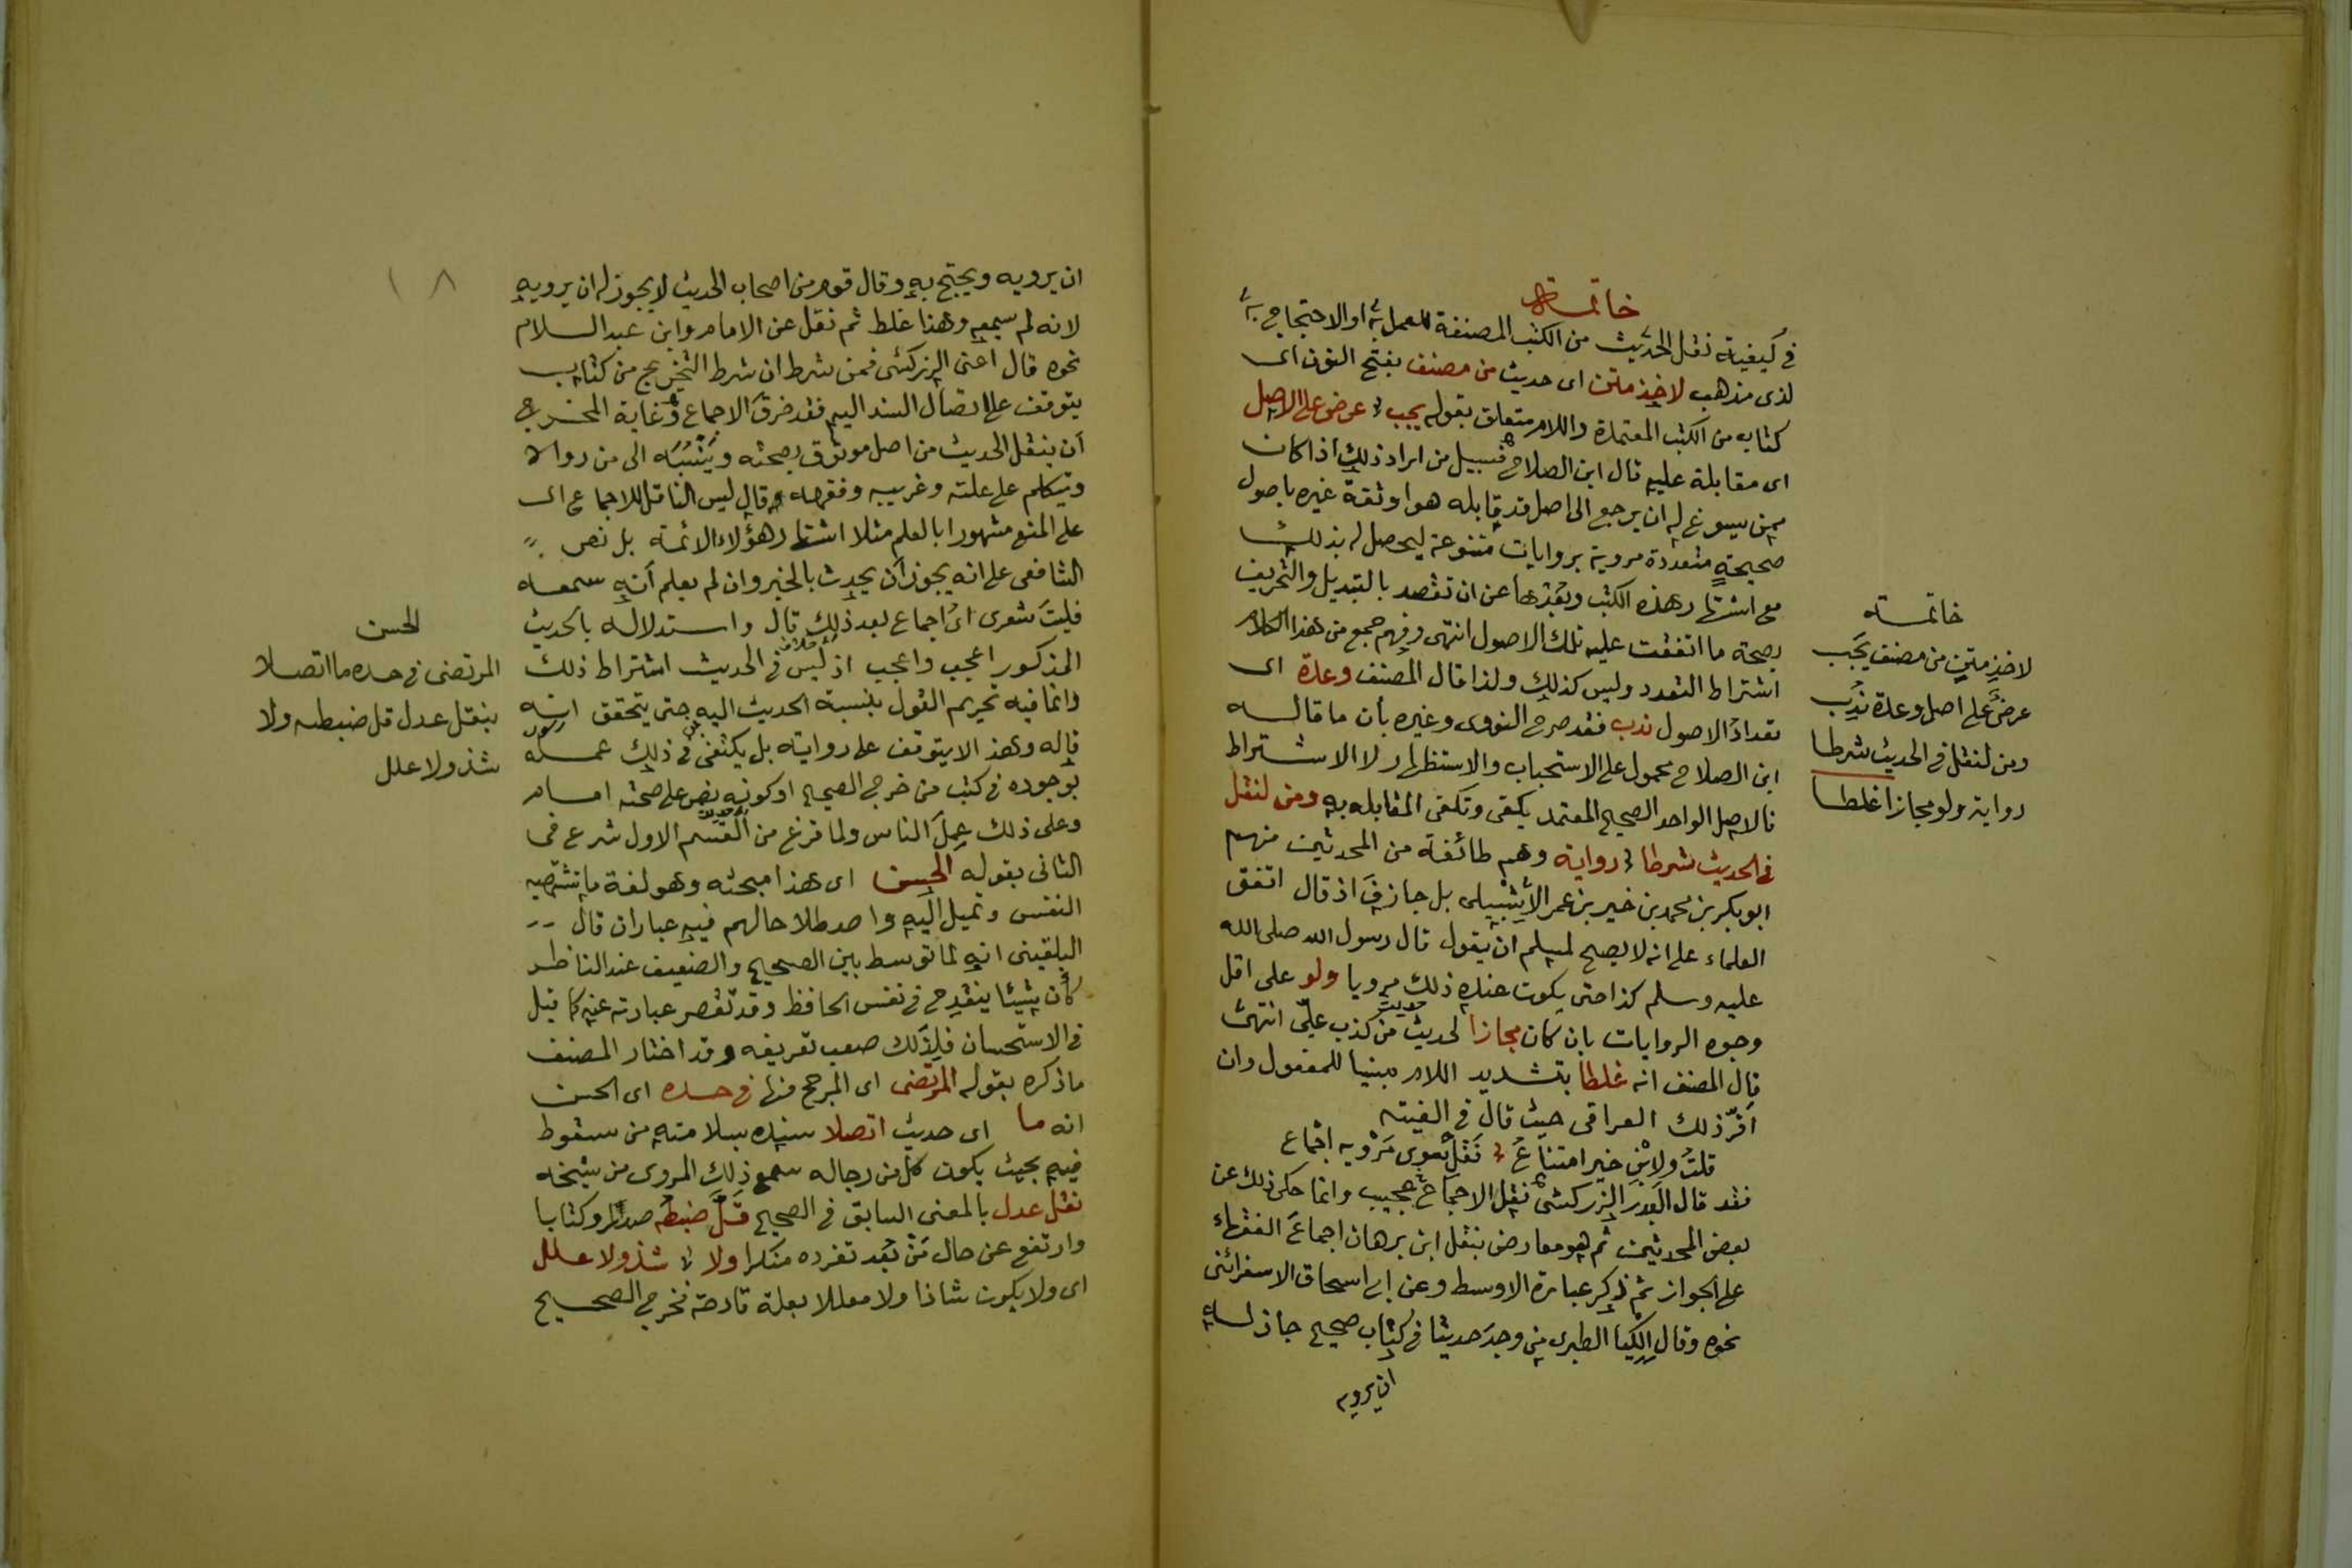 خاتمة
فى كيفية نقل الحديث من الكتب المصنفة للعمل به او الاحتجاج به
لذى مذهب لاخذ متن اى حديث من مصنف بفتح النون اى
كتاب من الكتب المعتمدة واللام متعلق بقوله يجب عرض على الاصل
اى مقابلة عليه قال ابن الصلاح فسبيل من اراد ذلك اذا كان
ممن يسوغ له ان يرجع الى اصل قد قابله هو او ثقة غيره باصول
صحيحة متعددة مروية بروايات متنوعة ليحصل له بذلك
مع اشتهار هذه الكتب وبعدها عن ان تقصد بالتبديل والتحريف
بصحة ما اتفقت عليه تلك الاصول انتهى وفهم جمع من هذا الكلام
اشتراط التعدد وليس كذلك ولذا قال المصنف وعدة اى
تعداد الاصول ندب فقد صرح النووى وغيره بأن ما قاله
ابن الصلاح محمول على الاستحباب والاستظهار لا الاشتراط
فالاصل الواحد الصحيح المعتمد يكفى وتكفى المقابلة به ومن لنقل
فى الحديث شرطا رواية وهم طائفة من المحدثين منهم
ابو بكر بن محمد بن خير بن عمر الاشبيلى بل جازف اذ قال اتفق
العلماء على انه لا يصح لمسلم ان يقول قال رسول الله صلى الله
عليه وسلم كذا حتى يكون عنده ذلك مرويا ولو على اقل
وجوه الروايات بان كان مجازا لحديث من كذب علىّ انتهى
قال المصنف انه غلطا بتشديد اللام مبنيا للمفعول وان
اقرّ ذلك العراقى حيث قال فى الفيته
قلتُ ولابن خير امتناعُ نَقْلِ سوى مَرْويه اجماع
فقد قال البدر الزركشى نقل الاجماع عجيب وانما حكى ذلك عن
بعض المحدثين ثم هو معارض بنقل ابن برهان اجماعَ الفقهاء
على الجواز ثم ذكر عبارة الاوسط وعن ابى اسحاق الاسفرائنى
نحوه وقال الكيا الطبرى من وجد حديثا فى كتاب صحيح جاز له
ان يرويه
خاتمة
لاخذ متن من مصنف يجب
عرض على اصل وعدة ندب
ومن لنقل فى الحديث شرطا
رواية ولو مجازا غلطا
١٨
ان يرويه ويحتج به وقال قوم من اصحاب الحديث لا يجوز له ان يرويه
لانه لم يسمعه وهذا غلط ثم نقل عن الامام وابن عبد السلام
نحوه قال اعنى الزركشى فمن شرط ان شرط التخريج من كتاب
يتوقف على اتصال السند اليه فقد خرق الاجماع وغاية المخرج
أن ينقل الحديث من اصل موثوق بصحته وينسبه الى من رواه
وتيكلم على علته وغريبه وفقهه وقال ليس الناقل للاجماع اى
على المنع مشهورا بالعلم مثلا اشتهار هؤلاء الائمة بل نص
الشافعى على انه يجوز أن يحدث بالخبر وان لم يعلم أنه سمعه
فليت شعرى اى اجماع بعد ذلك قال واستدلاله بالحديث
المذكور اعجب واعجب اذ ليس فى الحديث اشتراط ذلك
وانما فيه تحريم القول بنسبة الحديث اليه حتى يتحقق انه
قاله وهذا لا يتوقف على روايته بل يكتفى فى ذلك علمه
بوجوده فى كتب من خرج الصحيح او كونه نص على صحته امام
وعلى ذلك عمل الناس ولما فرغ من القسم الاول شرع فى
الثانى بقوله الحسن اى هذا مبحثه وهو لغة ما تشتهيه
النفس وتميل اليه واصطلاحا لهم فيه عبارات قال
البلقينى انه لما توسط بين الصحيح والضعيف عند الناظر
كأن شيئا ينقدح فى نفس الحافظ وقد تقصر عبارته عنه كما قيل
فى الاستحسان فلذلك صعب تعريفه وقد اختار المصنف
ما ذكره بقوله المرتضى اى المرجح منها فى حده اى الحسن
انه ما اى حديث اتصلا سنده بسلامته من سقوط
فيه بحيث يكون كل من رجاله سمع ذلك المروى من شيخه
نقل عدل بالمعنى السابق فى الصحيح قَلَّ ضبطه صدرا وكتابا
وارتفع عن حال من يُعد تفرده منكرا ولا شذ ولا علل
اى ولا يكون شاذا ولا معللا بعلة قادحة فخرج الصحيح
الحسن
المرتضى فى حده ما اتصلا
بنقل عدل قل ضبطه ولا
شذ ولا علل